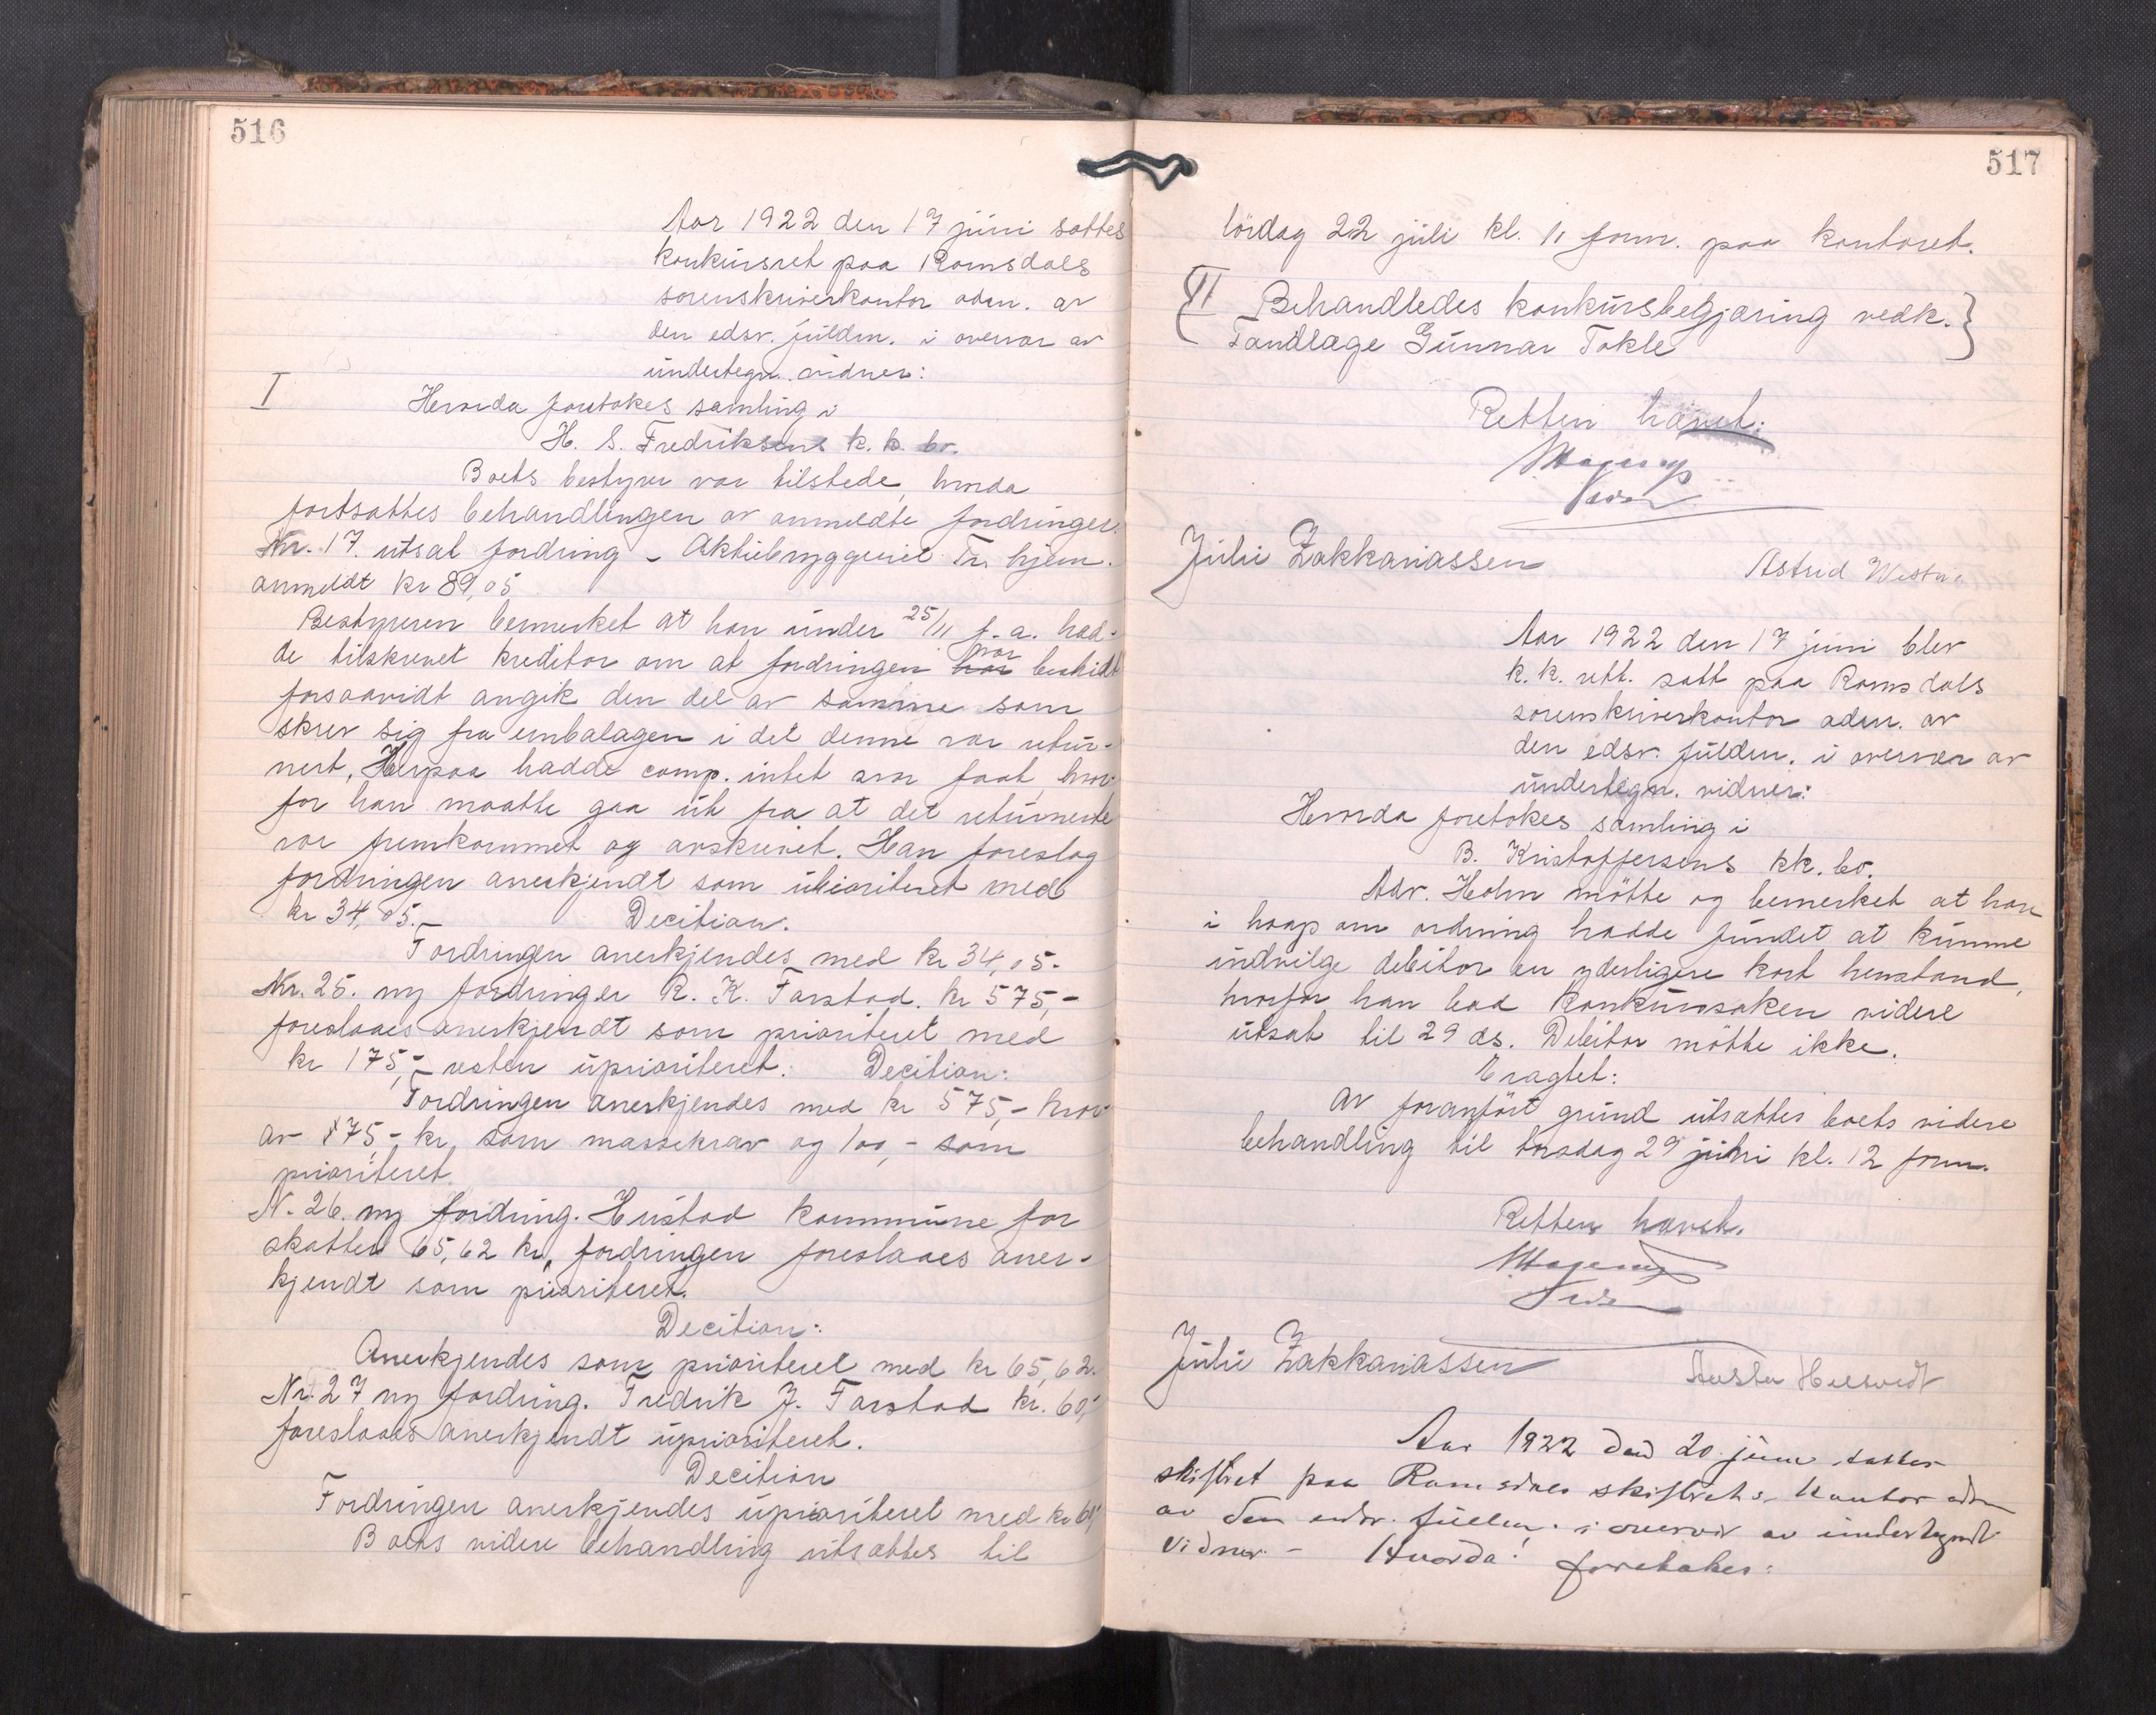 516
Aar 1922 den 17 juni sattes
konkursret paa Romsdals
sorenskriverkontor adm. av
den edsv. fuldm. i overvær av
undertegn. vidner:
I
Hvorda foretokes samling i
H. S. Fredriksens k. k. bo.
Boets bestyrer var tilstede, hvorda
fortsattes behandlingen av anmeldte fordringer.
Nr. 17. utsat fordring - Aktiebryggeriet Tr. hjem.
anmeldt kr 89,05
Bestyreren bemerket at han under 25/11 f. a. had-
de tilskrevet kreditor om at fordringen var bestridt
forsaavidt angik den del av samme som
skrev sig fra embalagen i det denne var retur-
nert, Herpaa hadde comp. intet svar faat, hvor-
for han maatte gaa ut fra at det returnerte
var fremkommet og avskrevet. Han foreslog
fordringen anerkjendt som uprioriteret med
kr 34,05.- Decition.
Fordringen anerkjendes med kr 34,05.
Nr. 25. ny fordringer K. K. Farstad. kr 575,-
foreslaaes anerkjendt som prioriteret med
kr 175,- resten uprioriteret. Decition:
Fordringen anerkjendes med kr 575,- hvor-
av 75,- kr, som massekrav og 100,- som
prioriteret.
N. 26. ny fordring. Hustad kommune for
skatter 65,62 kr, fordringen foreslaaes aner-
kjendt som prioriteret.
Decition:
Anerkjendes som prioriteret med kr 65,62.
Nr. 27 ny fordring. Fredrik J. Farstad kr. 60,-
foreslaaes anerkjendt uprioriteret.
Decition
Fordringen anerkjendes uprioriteret med kr 60,-
Boets videre behandling utsættes til
517
lördag 22 juli kl. 11 form. paa kontoret.
II Behandledes konkursbegjæring vedk.
Tandlæge Gunnar Tokle
Retten hævet:
Julie Zakkariassen Astrid
Aar 1922 den 17 juni blev
k. k. rett. satt paa Romsdals
sorenskriverkontor adm. av
den edsv. fuldm. i overvær av
undertegn. vidner:
Hvorda foretokes samling i
B. Kristoffersens kk. bo.
Adv. Holm mötte og bemerket at han
i haap om ordning hadde fundet at kunne
indvilge debitor en yderligere kort henstand,
hvorfor han bad konkurssaken videre
utsat til 29 ds. Debitor mötte ikke.
Eragtet:
Av foranfört grund utsattes boets videre
behandling til torsdag 29 juni kl. 12 form.
Retten hævet.
Julie Zakkariassen
Aar 1922 den 20. juni sattes
skifteret paa Romsdals skifterets kontor adm
av den edsv. fuldm. i overvær av undertegnede
vidner. - Hvorda! foretokes: